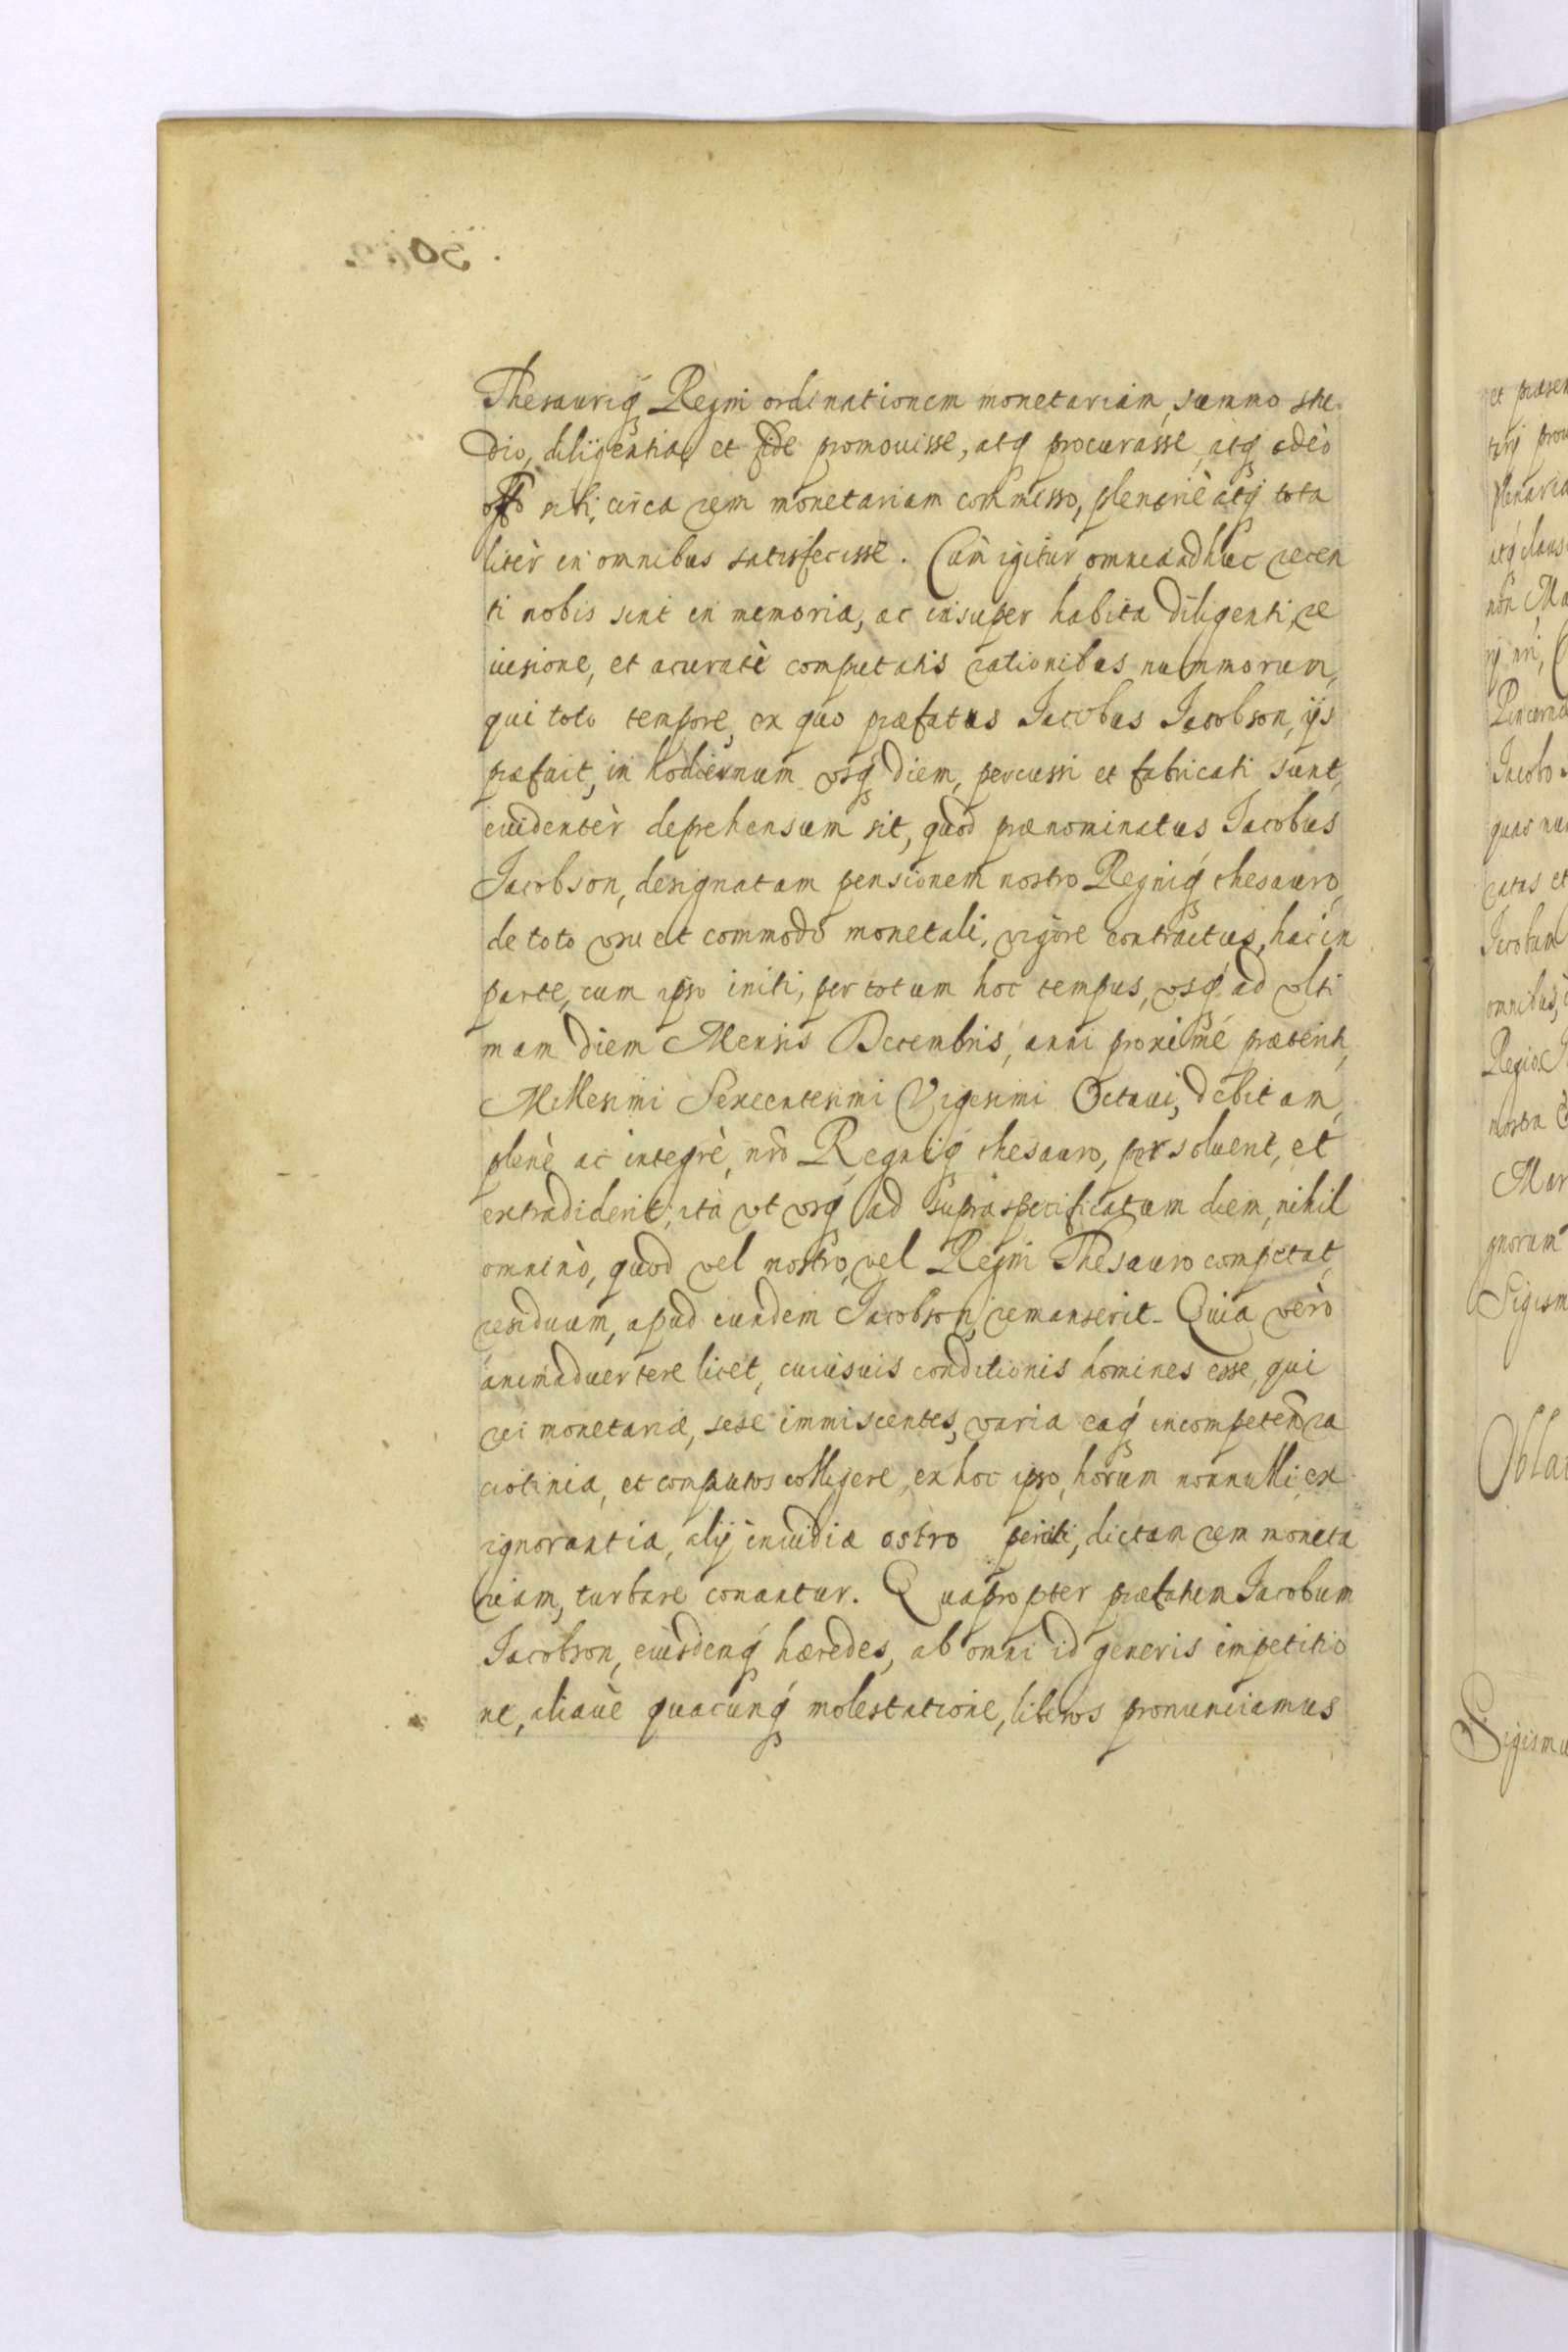 Thesauriq́ Regni ordinationem monetariam, summo stu
dio, diligentia, et fide promouisse, atq́ procurasse, atq́ adeò
offō sibi, circa rem monetariam commisso, plenariè atq́ tota
litèr in omnibus satisfecisse. Cùm igitur omnia adhuc recen
ti nobis sint in memoria, ac insuper habita diligenti, re
uisione, et acuratè computatis rationibus nummorum,
qui toto tempore, ex quo præfatus Jacobus Jacobson, ijs
præfuit, in hodiernum vsq́ diem, percussi et fabricati sunt,
euidentèr deprehensum sit, quòd prænominatus Jacobus
Jacobson, designatam pensionem nostro Regniq́ thesauro,
de toto vsu et commodo monetali, vigore contractus, hac in
parte, cum ipso initi, per totum hoc tempus, vsq́ ad vlti
mam diem Mensis Decembris, anni proximè præteriti,
Millesimi Sexcentesimi Vigesimi Octaui, debitam,
plenè ac integrè, nr̄o Regniq́ thesauro, persoluerit, et
extradiderit, ita vt vsq́ ad supraspecificatum diem, nihil
omninò, quod vel nostro, vel Regni Thesauro competat,
residuum, apud eundem Jacobson, remanserit. Quia verò
animaduertere licet, cuiusuis conditionis homines esse, qui
rei monetariæ, sese immiscentes, varia eaq́ incompetentia ra
tiotinia, et computos colligere, ex hoc ipso, horum nonnulli, ex
ignorantia, alij inuidiæ ostro perciti, dictam rem moneta
riam, turbare conantur. Quapropter præfatum Jacobum
Jacobson, eiusdemq́ hæredes, ab omni id generis impetitio
ne, aliauè quacunq́ molestatione, liberos pronunciamus
et præsen
Plenaria
Pincerna
Jacobo
quas nu
catas et
Jacobum
omnibus,
Regio
nostra
Mar
gnorum
Sigism
Oblat
Sigismu